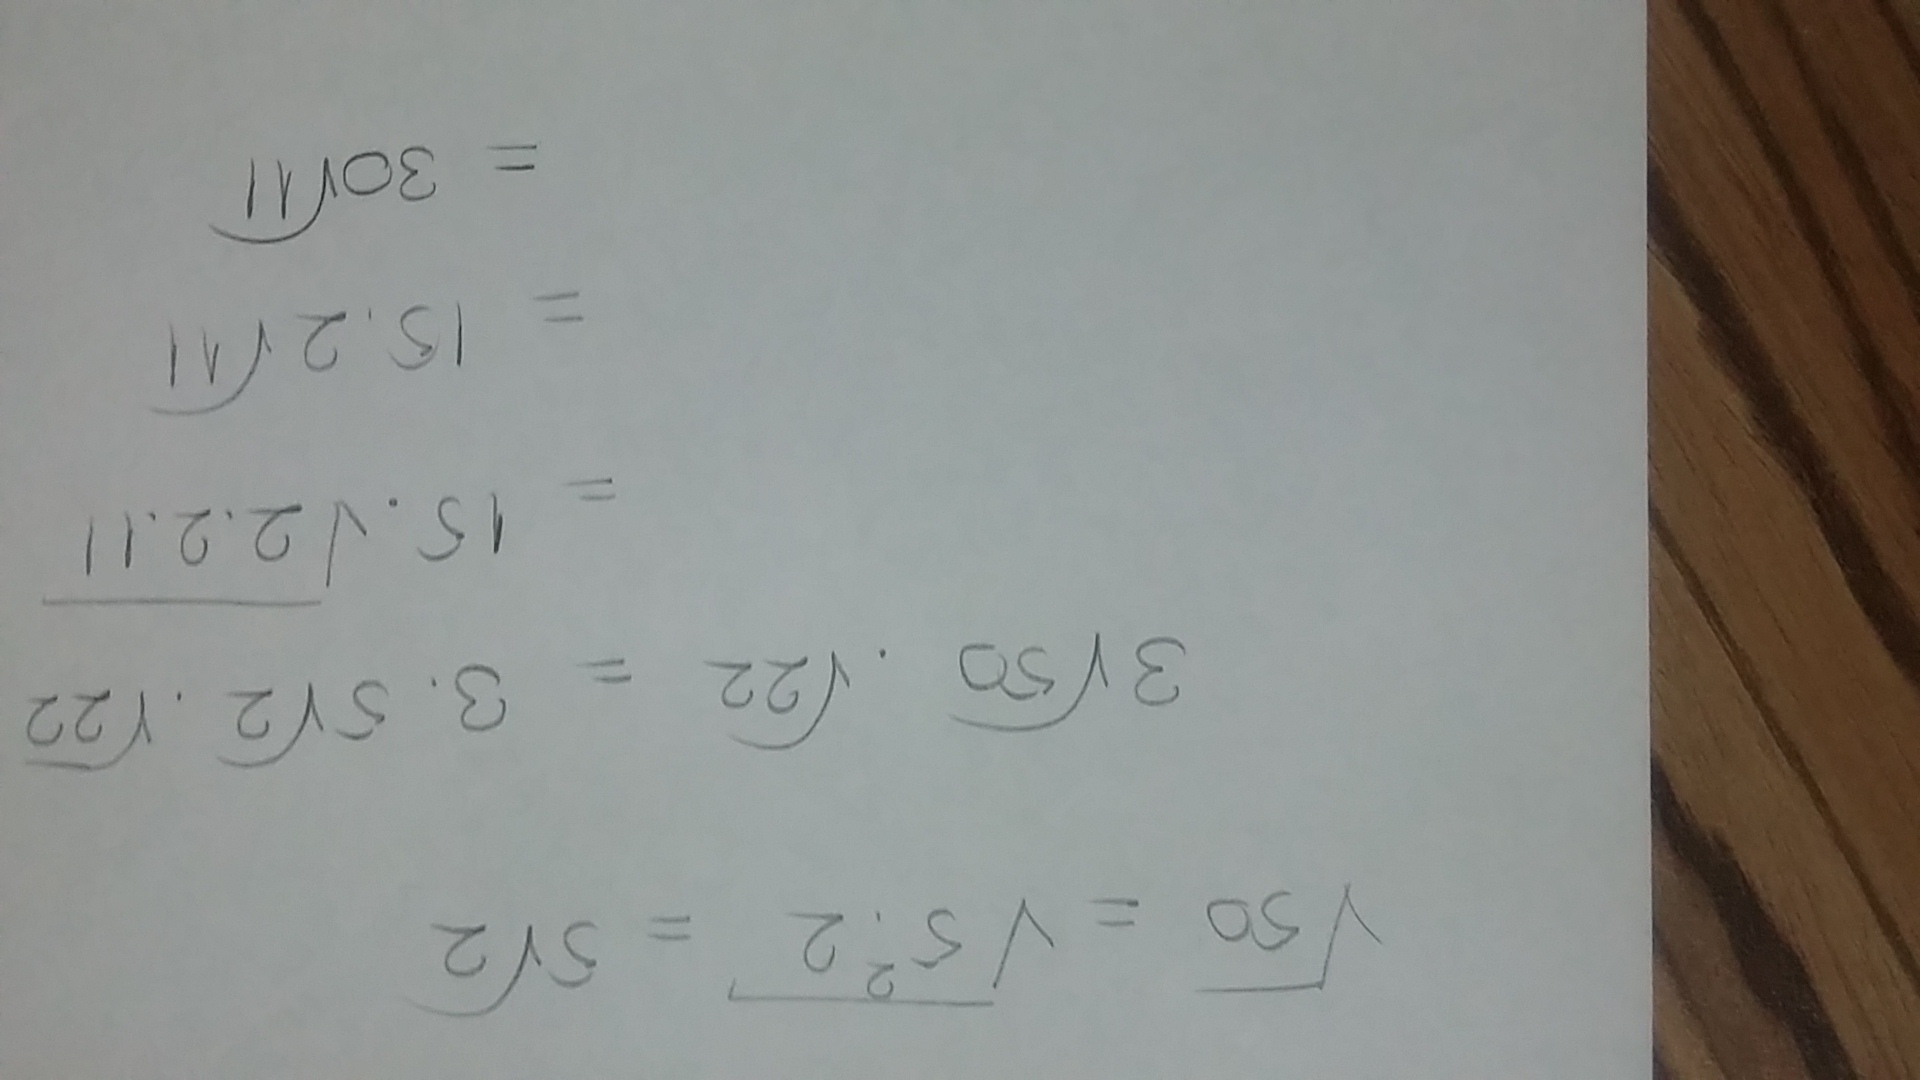 √50 = √5².2 = 5√2
3√50 . √22 = 3.5√2 . √22
= 15.√2.2.11
= 15.2√11
= 30√11